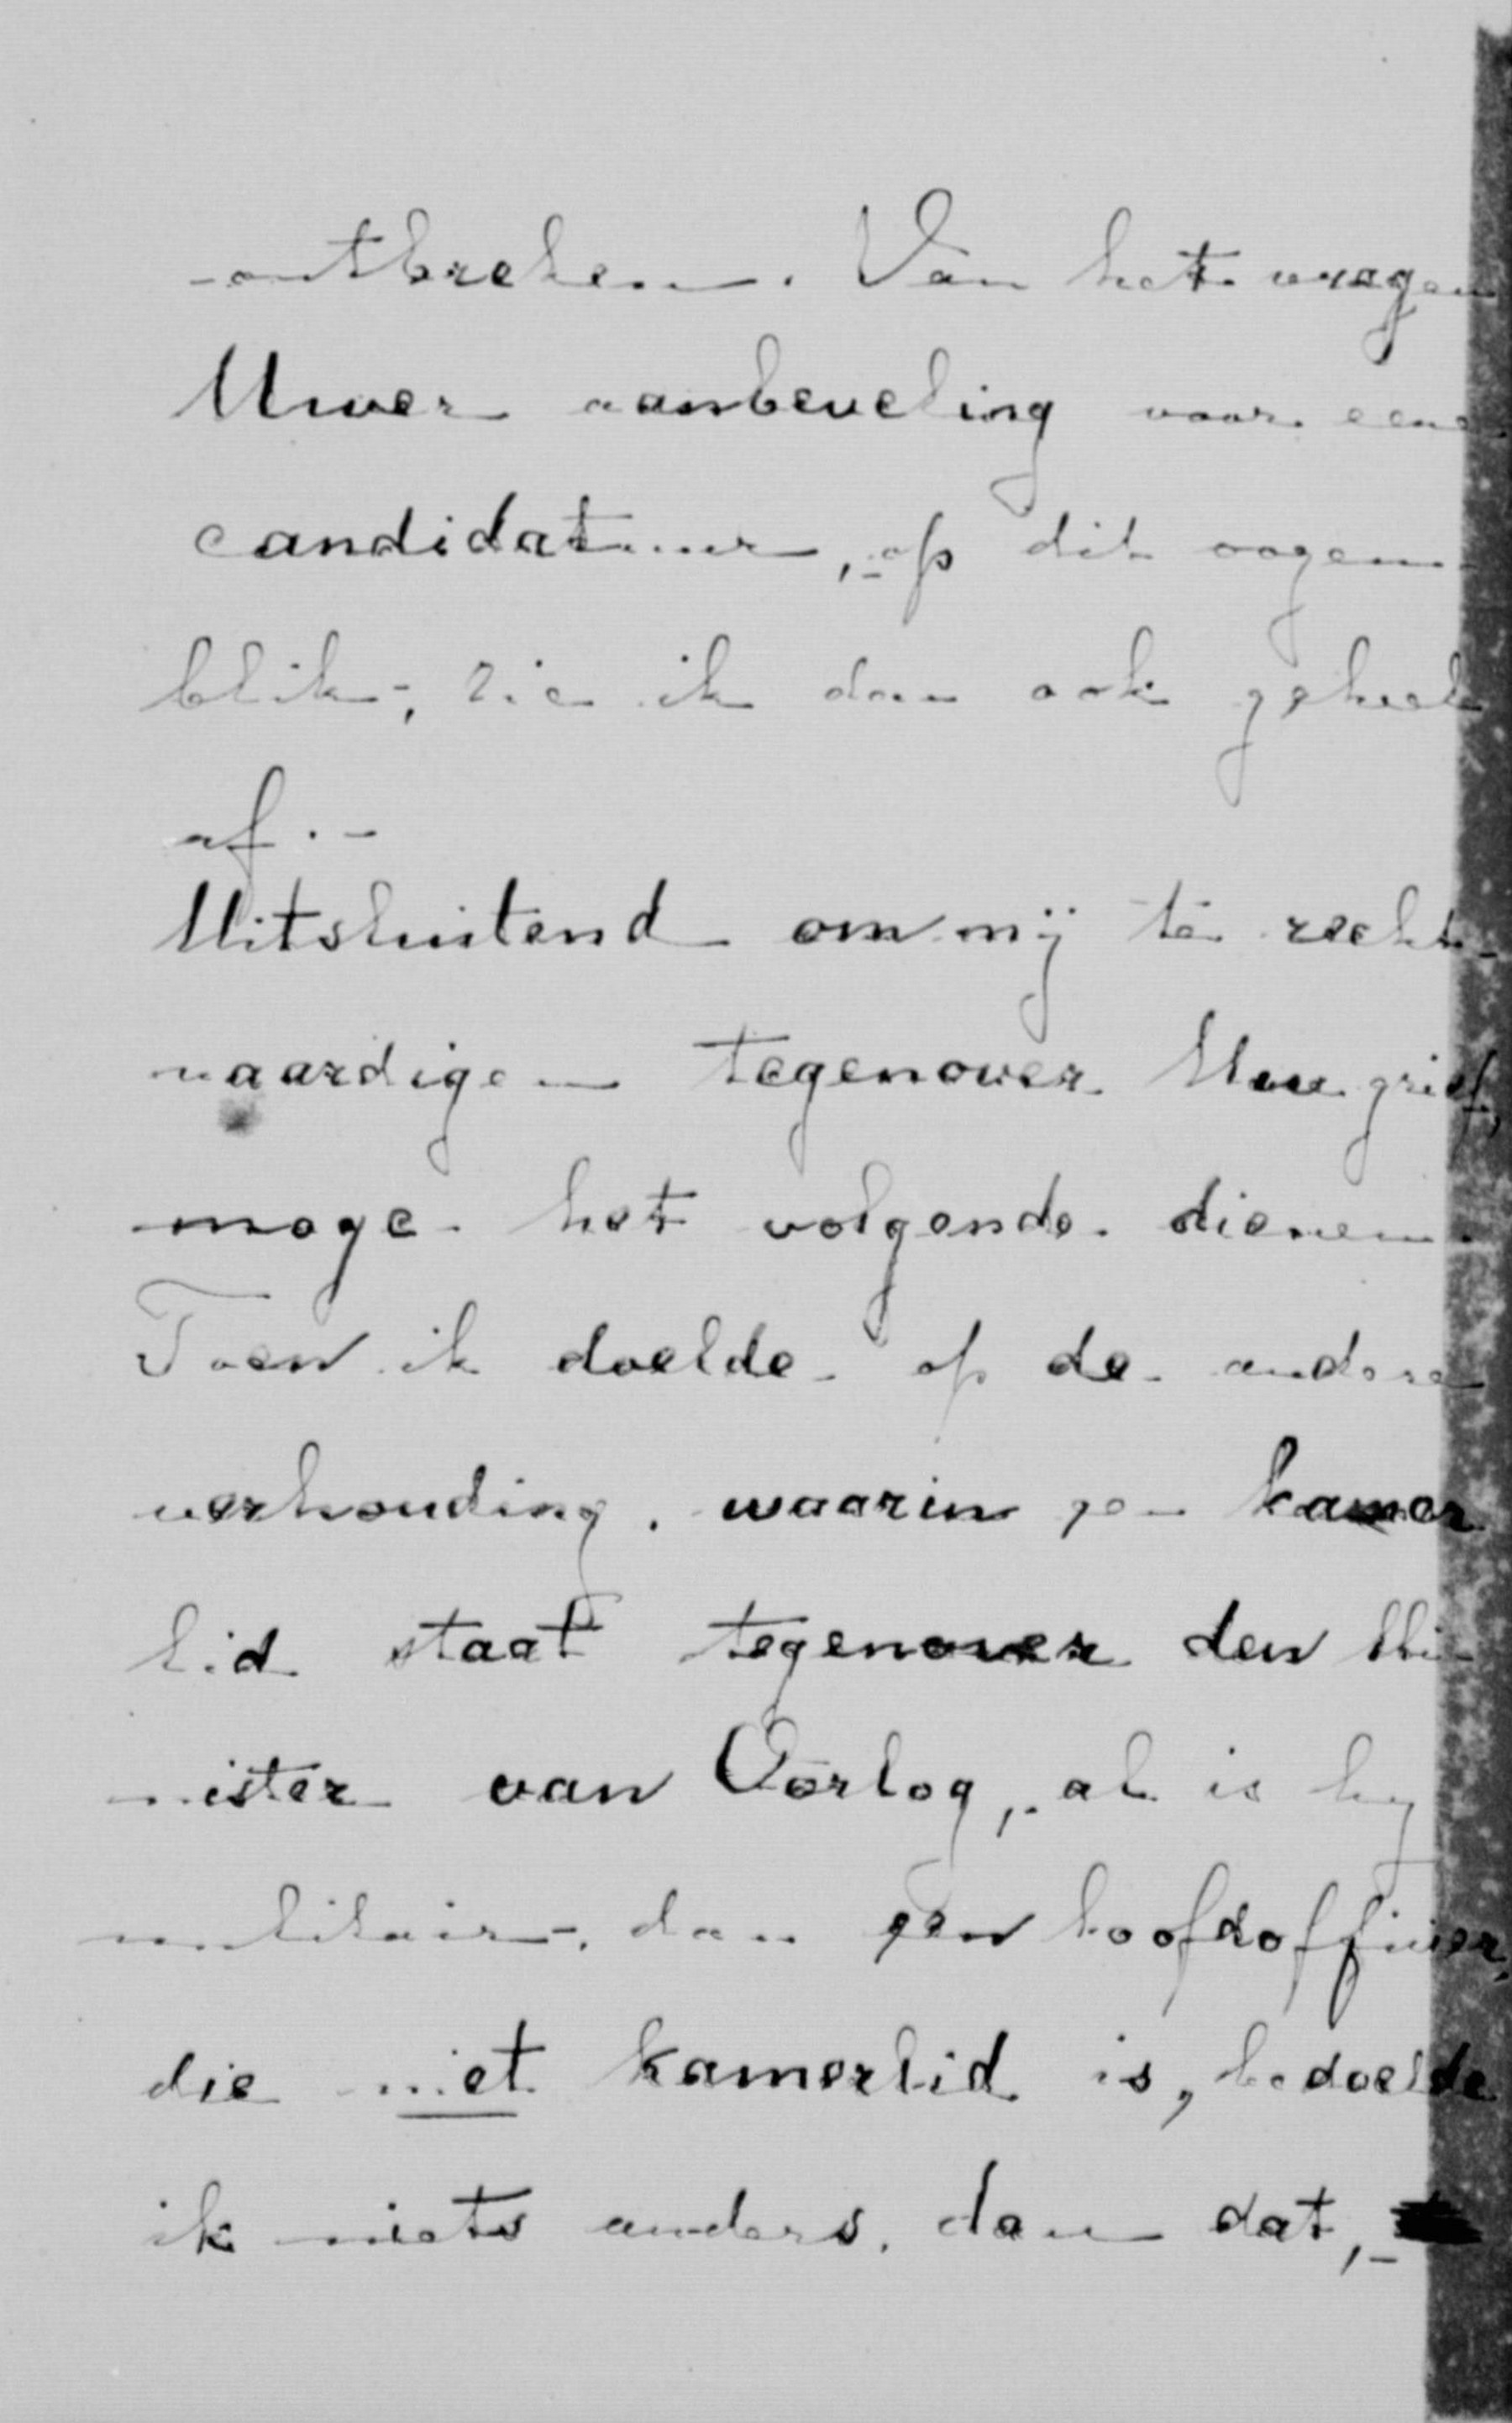 ontbreken. Van het vragen
Uwer aanbeveling voor eene
candidatuur, - op dit oogen-
blik -, zie ik dan ook geheel
af. -
Uitsluitend om mij te recht-
vaardigen tegenover Uwe grief,
moge het volgende dienen.
Toen ik doelde op de andere
verhouding, waarin een kamer
lid staat tegenover den Mi-
nister van Oorlog, - al is hij
militair -, dan een hoofdofficier,
die niet kamerlid is, bedoelde
ik niets anders, dan dat, -